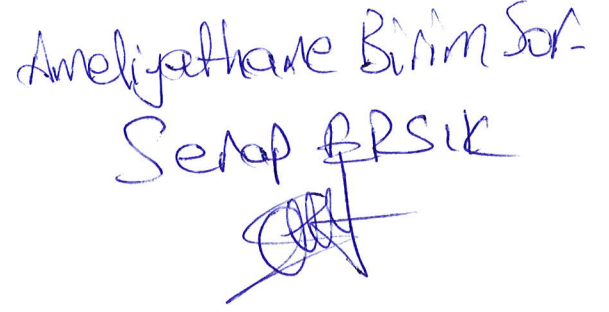 Ameliyathane Birim Sor.
Serap